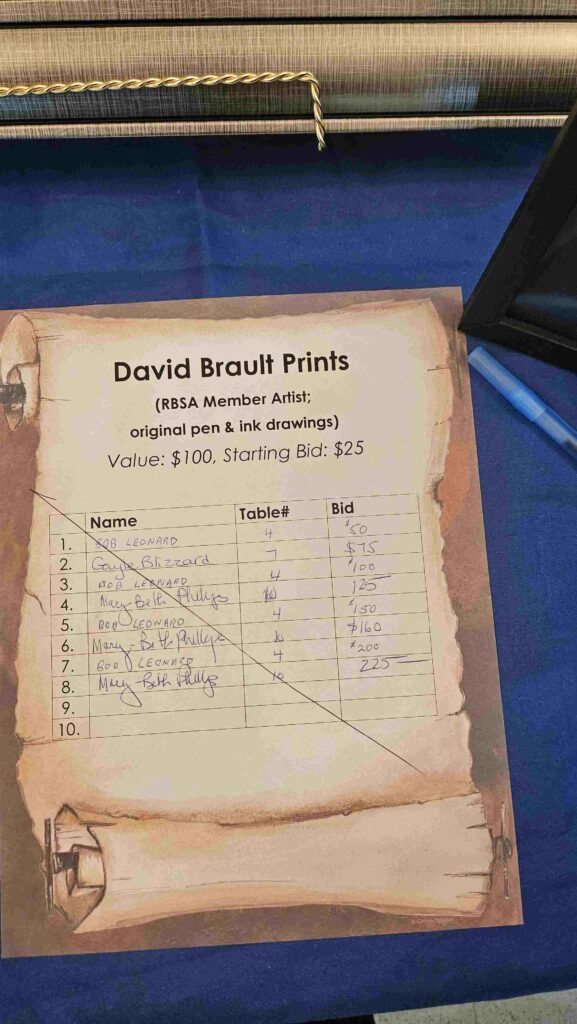 David Brault Prints
(RBSA Member Artist;
original pen & ink drawings)
Value: $100, Starting Bid: $25
Name Table# Bid
1. BOB LEONARD 4 $50
2. Gayle Blizzard 7 $75
3. BOB LEONARD 4 $100
4. Mary Beth Phillips 10 125
5. BOB LEONARD 4 $150
6. Mary-Beth Phillips 10 $160
7. BOB LEONARD 4 $200
8. Mary-Beth Phillips 10 225
9.
10.